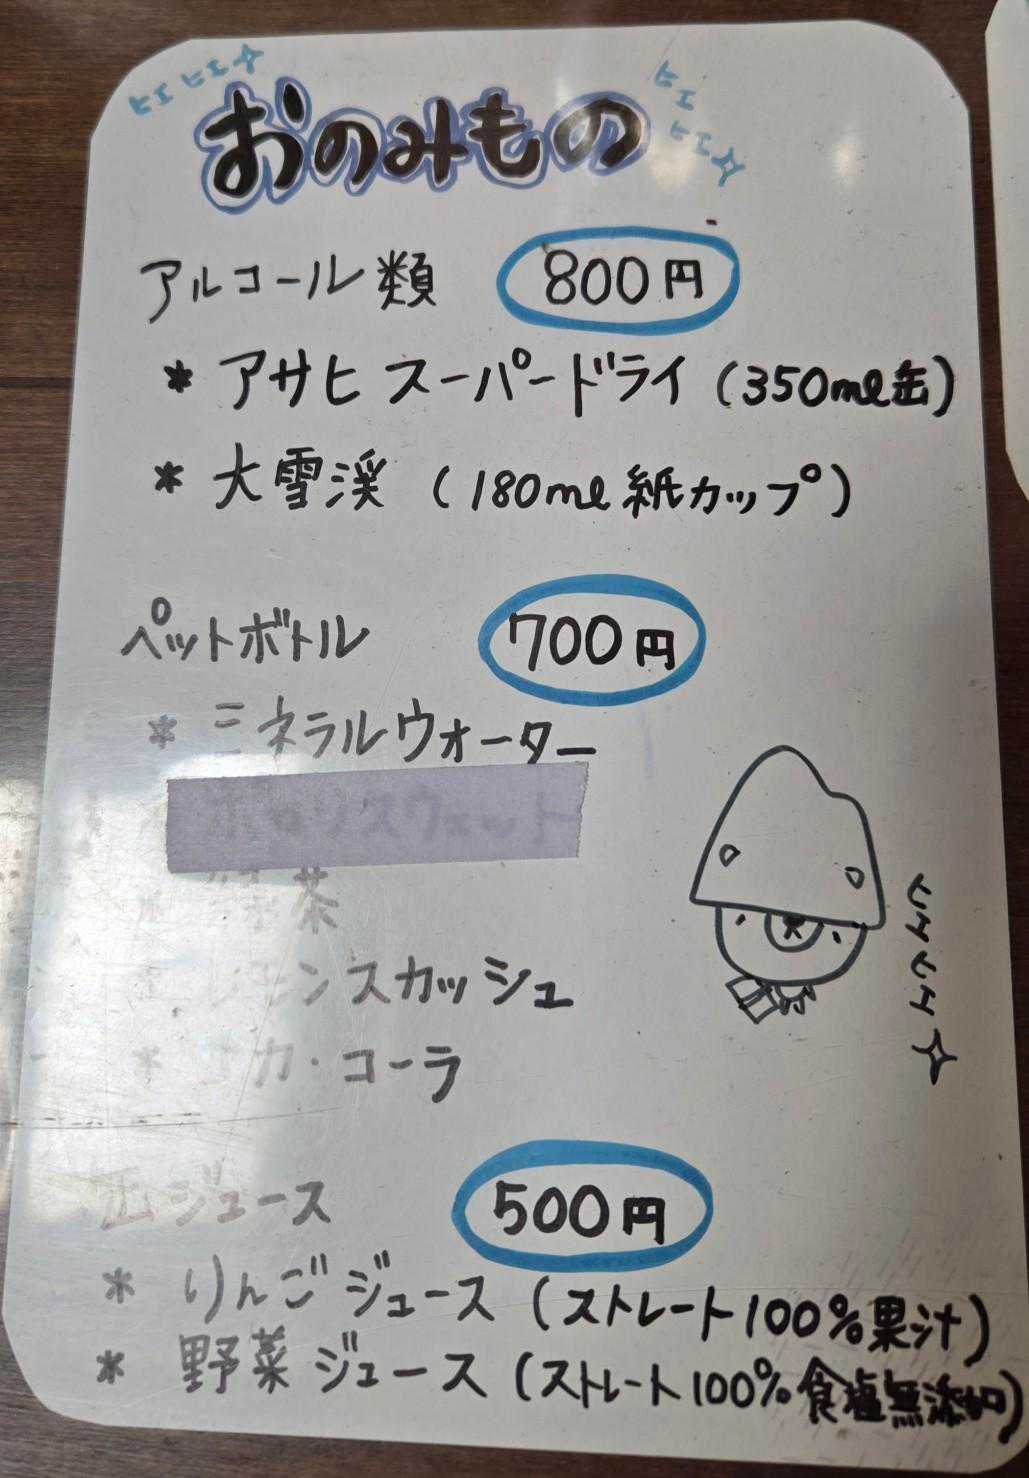 ヒエヒエ
おのみもの
ヒエ
ヒエ
アルコール類 800円
* アサヒ スーパードライ (350ml缶)
* 大雪渓 (180ml 紙カップ)
ペットボトル 700円
* ミネラルウォーター
ポカリスウェット
* 緑茶
* レモンスカッシュ
* コカ・コーラ
ヒエヒエ
缶ジュース 500円
* りんごジュース (ストレート100%果汁)
* 野菜ジュース (ストレート100%食塩無添加)